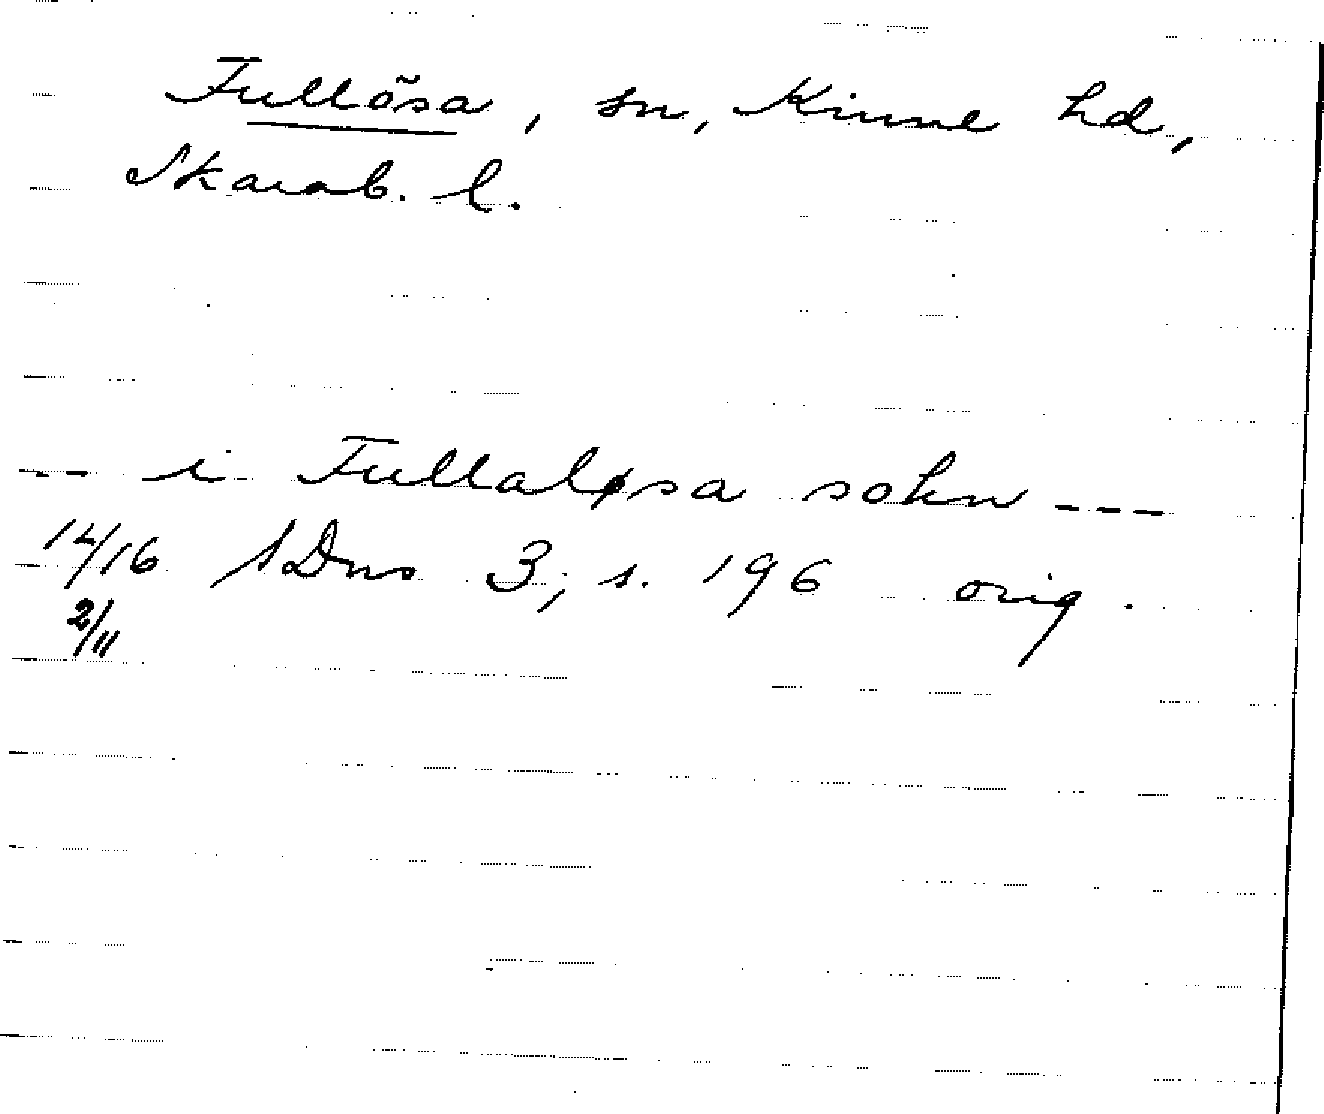 Fullösa, sn, Kinne hd,
Skarab. l.
--- i Fullaløsa sokn ---
14/16 SDns 3, s. 196 orig.
2/11